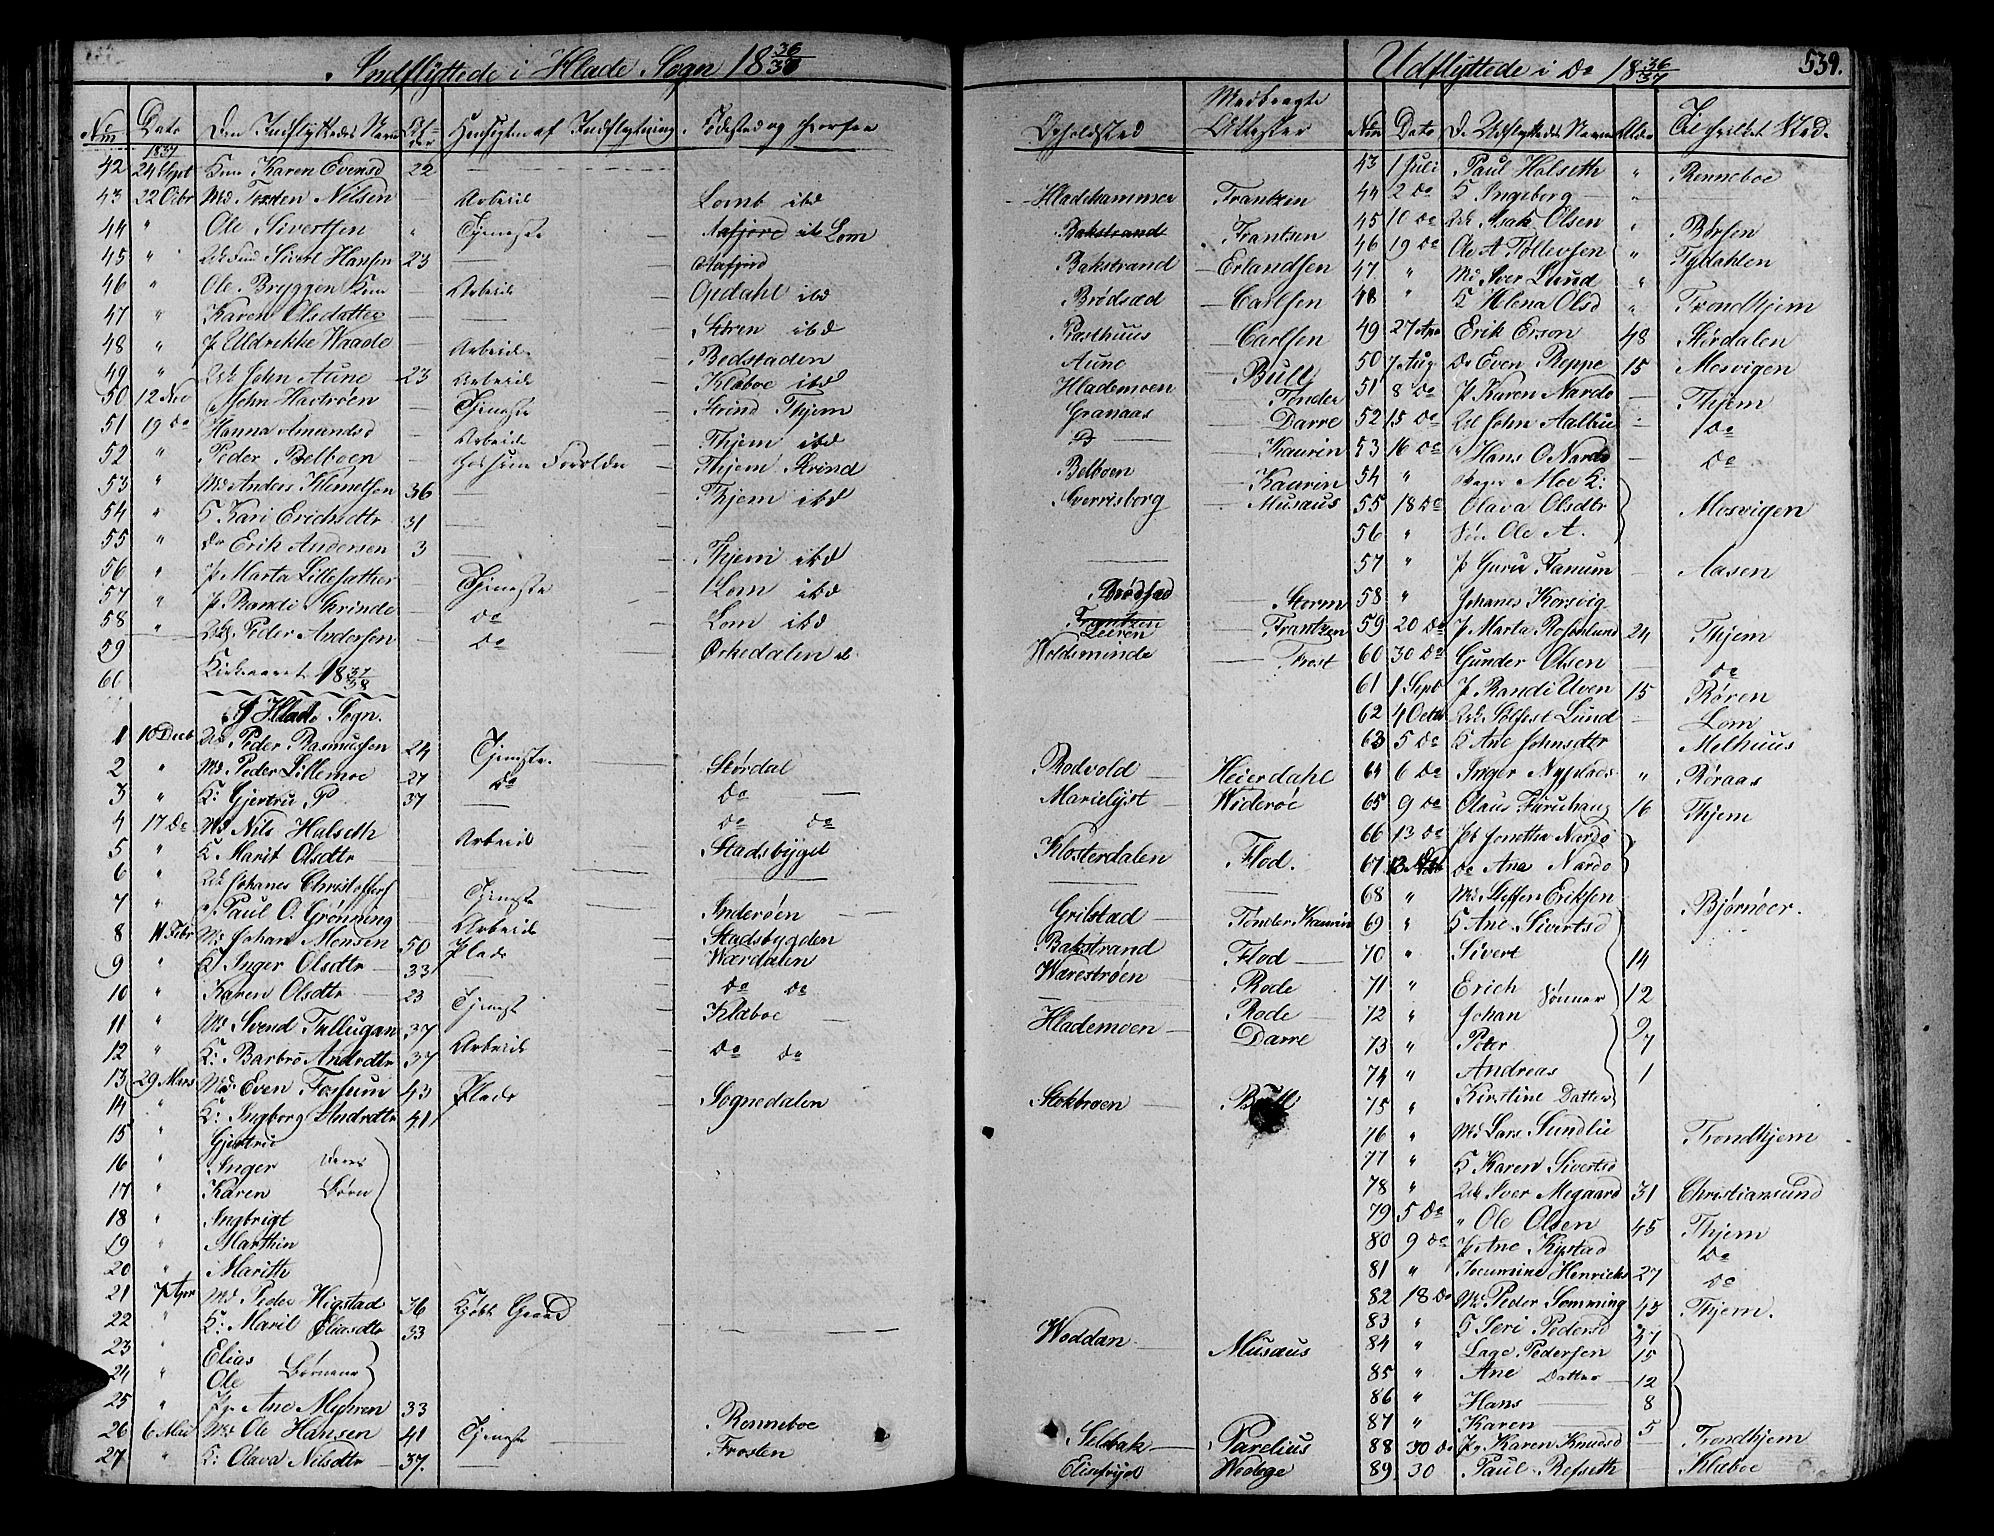 Indflyttede i Hlade Sogn 18 36/37
Num Dato Den Indflyttedes Navn Alder Hensigten af Indflytning Fødested og hvorfra
1837
42 24 Sept Km Karen Evensd 22
43 22 Octbr Md Torden Nilsen — Arbeide Lomb ibd
44 " Ole Sivertsen " Tjeneste Aafjord ib Lom
45 " Sivert Hansen 23 — Aafjord
46 " Ole Bryggen — Arbeide Opdahl ibd
47 " Karen Olsdatter — Stören ibd
48 " P Uldrikke Waade — Arbeide Bodstaden
49 " John Aune 23 Arbeide Klæboe ibd
50 12 Nov John Hastrøen — Tjeneste Strind Thjem
51 19 Do Hanna Amandsd — Arbeide Thjem ibd
52 " Peder Belboen Hos sine Forældre Thjem Strind
53 " Md Anders Klemetsen 36 — Thjem ibd
54 " K Kari Erichsdtr 31
55 " Erik Andersen 3 Thjem ibd
56 " P Marta Lillesather Tjeneste Lom ibd
57 " P Randi Strinde Do Lom ibd
58 " Peder Andersen Do Ørkedalen
59
60 Kirkeaaret 18 37/38
I Hlade Sogn.
1 10 Decb Peder Rasmussen 24 Tjeneste Størdal
2 " Md Peder Lillemoe 27 Do Do
3 " K: Gjertru P 37 — Do Do
4 17 Do Md Nils Halseth Arbeide Stadsbygd
5 " K Marit Olsdtr
6 " Johanes Christoffers Tjeneste Inderøen
7 " Paul O. Grønning Arbeide Stadsbygden
8 11 Febr Md Johan Monsen 50 Plads Wærdalen
9 " K Inger Olsdtr 33 Do Do
10 " Karen Olsdtr 23 Tjenest Klæboe
11 " Md Svend Tullugan 37 Arbeide Do Do
12 " K: Barbro Andrdtr 37
13 29 Mars Md Even Fossum 43 Plads Sognedalen
14 " K: Ingborg Andrdtr 41
15 " Gjertrud
16 " Inger Deres
17 " Karen Børn
18 " Ingbrigt
19 " Marthin
20 " Marith
21 7 Apr Md Peder Higstad 36 Kjøbt Gaard
22 " K: Marit Eliasdtr 33
23 " Elias
24 " Ole Børnene
25 " Pg Ane Myhren 33 Renneboe
26 6 Mai Md Ole Hansen 41 Tjeneste Frosten
27 " K: Olava Nilsdtr 37.
Udflyttede i Do 18 36/37 539.
Opholdsted Medbragte Attester Num Dato De Udflyttedes Navne Alder Til hvilket Sted.
43 1 Juli Paul Halseth " Renneboe
Hladehammer Frantzen 44 2 Do K Ingeborg —
Bakstrand Frantsen 45 10 Do Isak Olsen " Børsen
Bakstrand Erlandsen 46 19 Do Ole A Tollevsen " Tydahlen
Brødsæd Carlsen 47 " Md Iver Lund "
Rasthuus Carlsen 48 " K Helena Olsd " Trondhjem
Aune Bull 49 27 Erik Erson 48 Størdalen
Hlademoen Tønder 50 7 Aug Even Reppe 15 Mosvigen
Granaas Darre 51 8 Do P Karen Nardo — Thjem
Do Kaurin 52 15 Do John Aalbu Do
Belboen Kaurin 53 16 Do Hans O Nardo — Do
Sverrisborg Musaus 54 " Moe K:
55 18 Do Olava Olsdtr Mosvigen
56 " Søn Ole A.
57 " P Guru Stanum — Aasen
Brødsæd Storm 58 " Johanes Korsvig
Leiren Frantzen 59 20 Do P Marta Rosenlund 24 Thjem
Woldsminde Frost 60 30 Do Gunder Olsen Do
61 1 Sept P Randi Uven 15 Røren
62 4 Octbr Solfest Lund — Lom
63 5 Do K Ane Johnsdtr Melhuus
Rodvold Heierdahl 64 6 Do Inger Nyplads " Røraas
Marielyst Widerøe 65 9 Do Olaus Furuhaug 16 Thjem
Klosterdalen Flod. 66 13 Do Jonetta Nardo
67 13 Do Ane Nardo
Grilstad Tønder Kaurin 68 " Md Steffen Eriksen Bjørnøer.
Bakstrand Flod 69 " K Ane Sivertsd
Wærestrøen Rode 70 " Sivert 14
Rode 71 " Erich Sønner 12
Hlademoen Darre 72 " Johan 9
73 " Peter 7
74 " Andreas 1
Stokbroen Bull 75 " Kirstine Datter
76 " Md Lars Sundlie Trondhjem
77 " K Karen Sivertsd
78 " Iver Megaard 31 Christiansund
79 5 Do " Ole Olsen 45 Thjem
80 9 Do P Ane Kystad Do
81 " Jocumine Henrichs 27 Do
82 18 Do Md Peder Somming 45 Thjem.
83 " K Seri Pedersd 47
Woddan Musæus 84 " Lage Pedersen 15
85 " Ane Datter 12
86 " Hans 8
87 " Karen 5
Selsbak Parelius 88 30 Do Pg Karen Knudsd — Trondhjem
Elisefryd Wedege 89 30 Paul Refseth — Klæboe